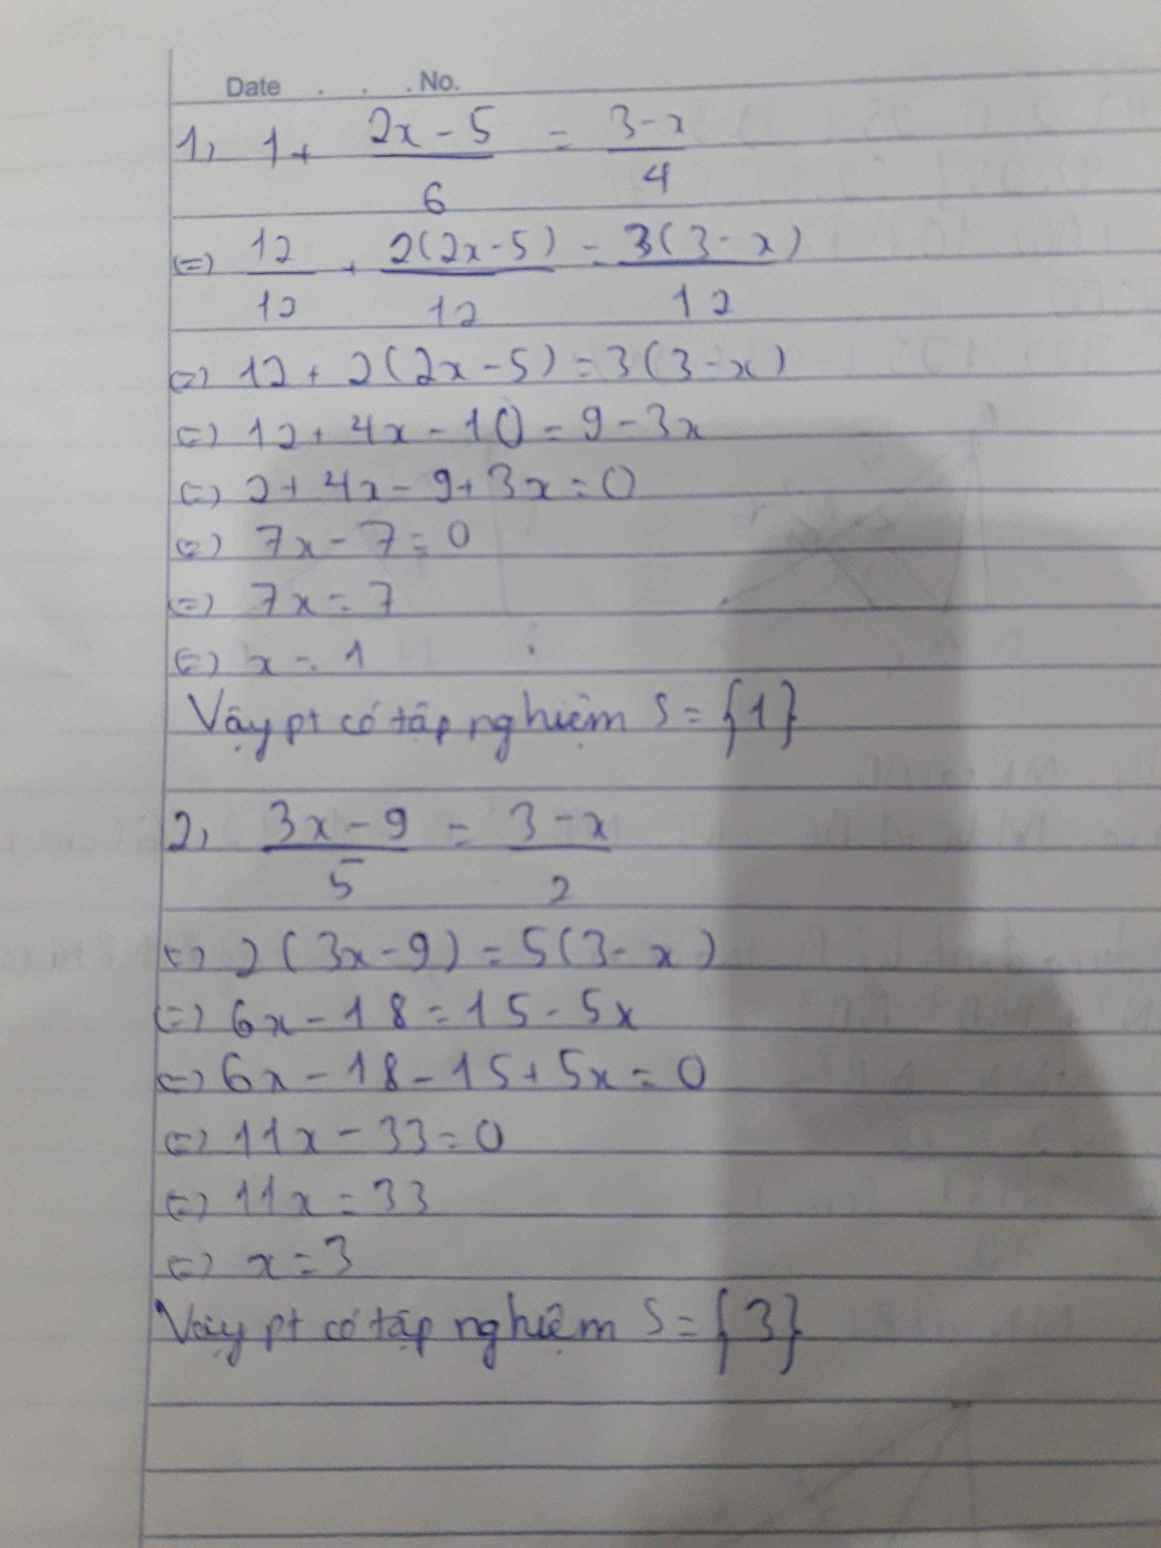 Date . . . No.
1, 1 + (2x - 5)/6 = (3 - x)/4
<=> 12/12 + 2(2x - 5)/12 = 3(3 - x)/12
<=> 12 + 2(2x - 5) = 3(3 - x)
<=> 12 + 4x - 10 = 9 - 3x
<=> 2 + 4x - 9 + 3x = 0
<=> 7x - 7 = 0
<=> 7x = 7
<=> x = 1
Vậy pt có tập nghiệm S = {1}
2, (3x - 9)/5 = (3 - x)/2
<=> 2(3x - 9) = 5(3 - x)
<=> 6x - 18 = 15 - 5x
<=> 6x - 18 - 15 + 5x = 0
<=> 11x - 33 = 0
<=> 11x = 33
<=> x = 3
Vậy pt có tập nghiệm S = {3}